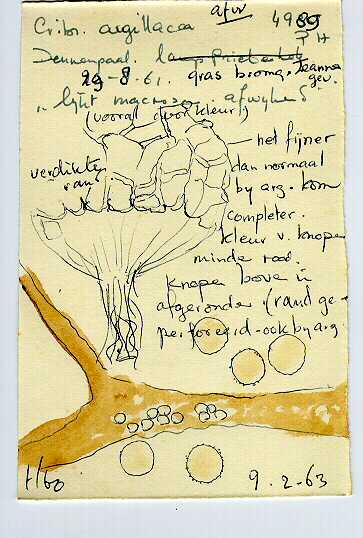 afw
Cribr. argillacea 4989
PH
Dennenpaal.
29-8-61. gras bromg. Jeanne
gev.
"lijkt macrosc. afwijkend"
(vooral door kleur)
verdikte
rand
net fijner
dan normaal
by arg. kom
completer.
kleur v. knopen
minder rood.
Knopen boven
afgeronder (rand ge-
perforeerd - ook by arg
1160
9.2-63